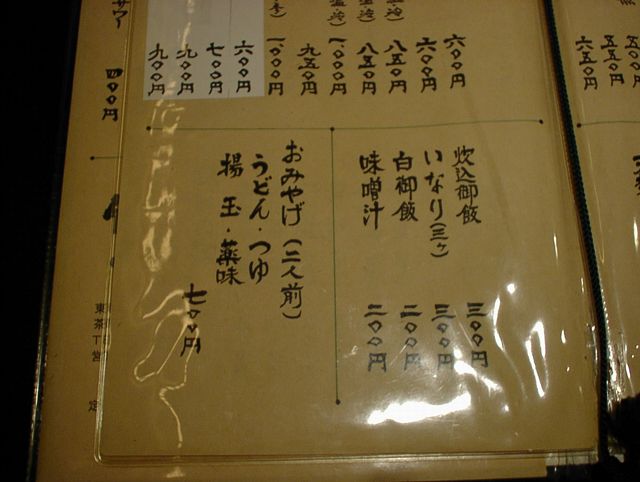 五五〇円
五五〇円
六五〇円
六〇〇円
六〇〇円
八五〇円
八五〇円
一、〇〇〇円
九五〇円
一、〇〇〇円
六〇〇円
七〇〇円
九〇〇円
九〇〇円
炊込御飯 三〇〇円
いなり(三ヶ) 三〇〇円
白御飯 二〇〇円
味噌汁 二〇〇円
おみやげ(二人前)
うどん・つゆ
揚玉・薬味
七〇〇円
サワー 四〇〇円